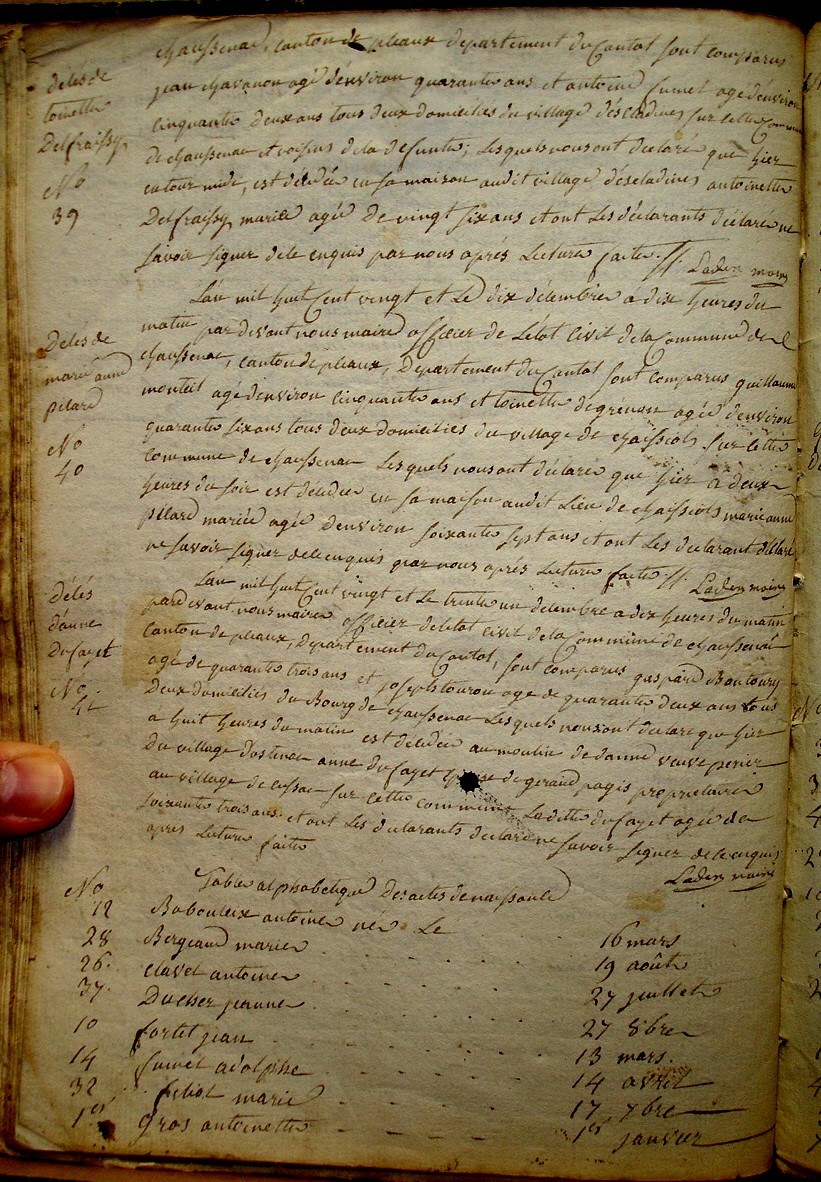 chaussenac, canton de pleaux departement du Cantal sont comparus
décès de
toinette
Delfraissy
No
39
jean chavanon agé d'environ quarante ans et antoine fumel agé d'environ
cinquante deux ans tous deux domiciliés du village d'éscladines sur cette commune
de chaussenac et voisins de la defunte; Lesquels nous ont declaré que hier
entour midi, est décédée en sa maison audit village d'éscladines antoinette
Delfraissy mariée agée de vingt six ans et ont Les déclarants déclaré ne
savoir signer de ce enquis par nous aprés Lecture faite.
L'an mil huit Cent vingt et Le dix décembre a dix heures du
Décès de
marie anne
pélard
No
40
matin par devant nous maire officier de L'état Civil de la Commune de
chaussenac, canton de pleaux, Département du Cantal sont comparus guillaume
monteil agé d'environ cinquante ans et toinette degrenan agée d'environ
quarante six ans tous deux domiciliés du village de chaissiols sur cette
commune de chaussenac Lesquels nous ont déclaré que hier a deux
heures du soir est décédée en sa maison audit Lieu de chaissiols marie anne
pélard mariée agée d'environ soixante sept ans et ont Les declarant déclaré
ne savoir signer de ce enquis par nous aprés Lecture faite
L'an mil huit Cent vingt et Le trente un décembre a dix heures du matin
décés
d'anne
Dufayet
No
41
pardevant nous maire officier de letat civil de la Commune de chaussenac
Canton de pleaux, Departement du Cantal, sont comparus gaspard Bontoury
agé de quarante trois ans et joseph touron agé de quarante deux ans tous
Deux domiciliés du Bourg de chaussenac Lesquels nous ont declaré que hier
a huit heures du matin est décédée au moulin de d'anne veuve perier
Du village d'ostenac anne dufayet epouse de geraud pagis proprietaire
au village de cussac sur cette commune Ladite dufayet agée de
soixante trois ans et ont Les declarants declaré ne savoir signer de ce enquis
apres Lecture faite
Table alphabetique Des actes de naissance
No
12 Babouleix antoine né Le 16 mars
28 Bergeaud marie 19 août
26 clavel antoine 27 juillet
37 Duchez jeanne 27 8bre
10 fortet jean 13 mars
14 fumel adolphe 14 avril
32 filiol marie 17 7bre
1er gros antoinette 1er janvier